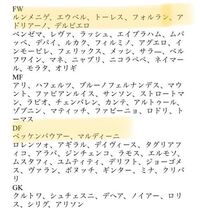 FW
ルンメニゲ、エウベル、トーレス、フォルラン、ア
ドリアーノ、デルピエロ
ベンゼマ、レヴァ、ラッシュ、エイブラハム、ムバ
ッペ、デパイ、ルカク、フィルミノ、アグエロ、イ
ンモービレ、フェリックス、メッシ、サラー、ベル
フワイン、マネ、ニャブリ、ニコラペペ、ネイマー
ル、モラタ、オリギ
MF
アリ、ハフェルツ、ブルーノフェルナンデス、マウ
ント、ファビアンルイス、サンソン、ストロートマ
ン、ラビオ、チェンバレン、カンテ、アルトゥール
、ゾブニン、マティッチ、ファビーニョ、ロドリ、ト
ーマス
DF
ベッケンバウアー、マルディーニ
ロレンツォ、アギラル、デイヴィース、タグリアフ
ィコ、アラバ、ジンチェンコ、ラモス、エルモソ、
ムスタフィ、ユムティティ、デリフト、ジョーゴメ
ス、ヴァラン、ボヌッチ、ギンター、ミナ、クリバ
リ
GK
クルトワ、シュチェスニ、デヘア、ノイアー、ロリ
ス、シリグ、アリソン